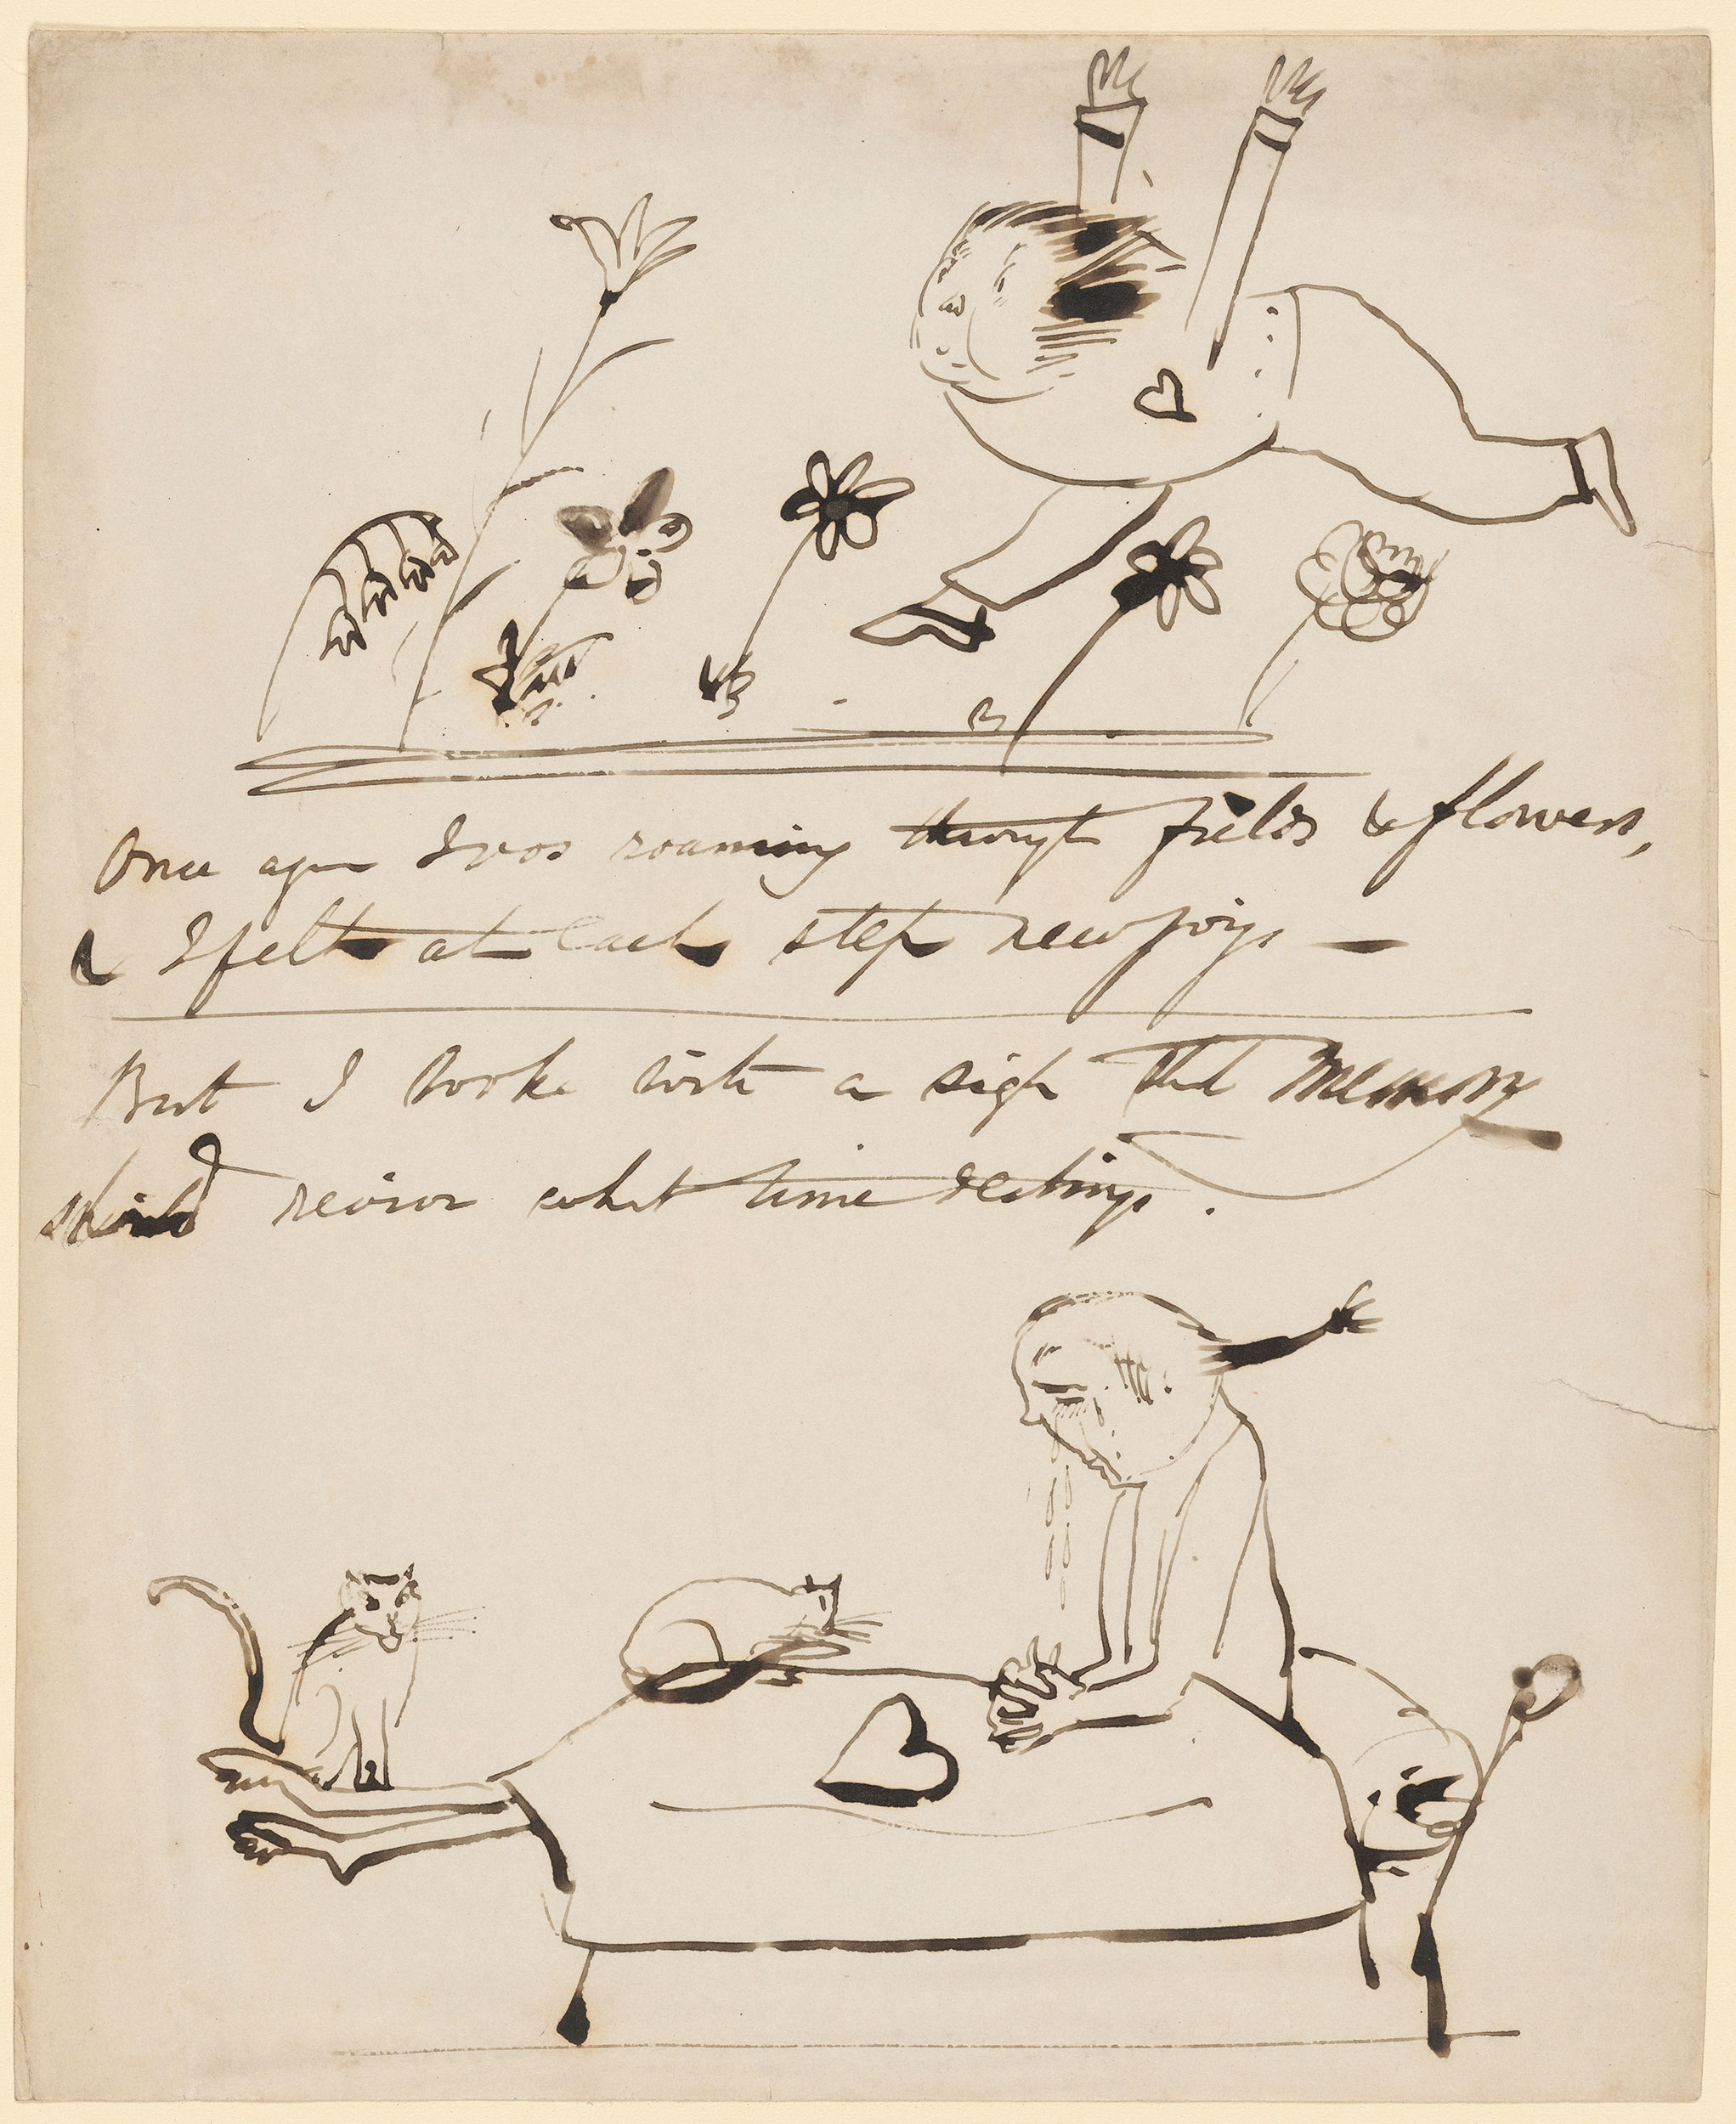 Once again I was roaming through fields & flowers,
& I felt at each step new joys —
But I woke with a sigh that memory
should revive what time destroys.